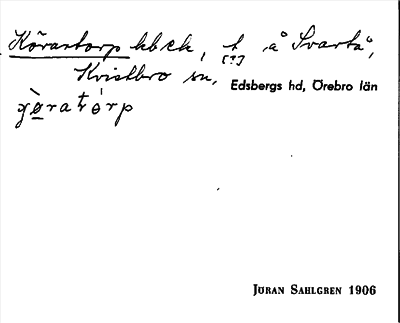 Körartorp hbck, t å Svartå,
[?]
Kristbro sn, Edsbergs hd, Örebro län
gö̀ratórp
JÖRAN SAHLGREN 1906